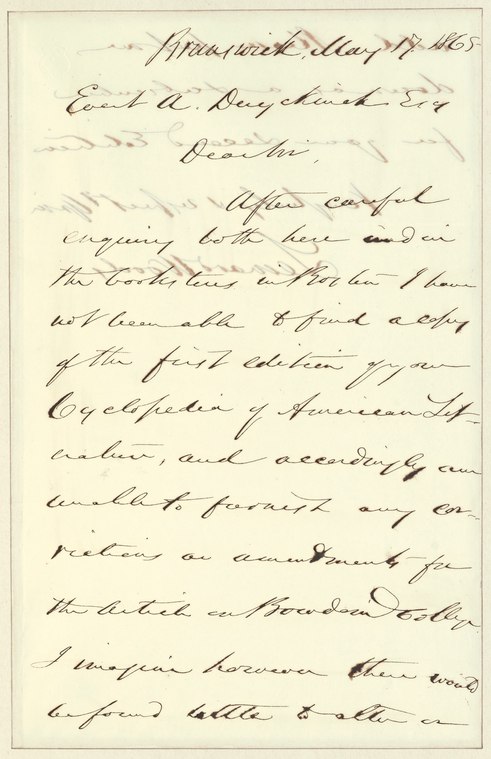 Brunswick, May 17, 1865
Evert A. Duyckinck Esq
Dear Sir,
After careful
enquiry both here and in
the bookstores in Boston I have
not been able to find a copy
of the first edition of your
Cyclopedia of American Lit-
erature, and accordingly am
unable to furnish any cor-
rections or amendments for
the article on Bowdoin College
I imagine however there would
be found little to alter or